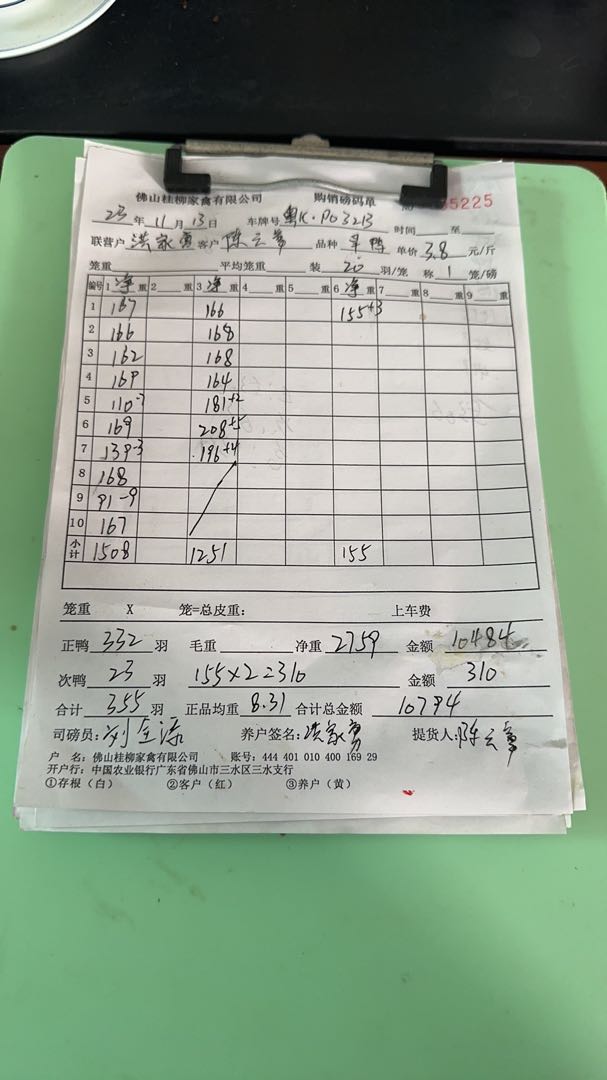 佛山桂柳家禽有限公司 购销磅码单 5225
23年11月13日 车牌号 粤K·P03213 时间 至
联营户 洪家勇 客户 陈云 品种 单价 3.8 元/斤
笼重 平均笼重 装 20 羽/笼 称 1 笼/磅
编号 1 净 重 2 重 3 净 重 4 重 5 重 6 净 重 7 重 8 重 9 重
1 167 166 155+3
2 166 168
3 162 168
4 169 164
5 110-7 181+2
6 169 208+5
7 139-3 196+4
8 168
9 91-9
10 167
小计 1508 1251 155
笼重 X 笼=总皮重： 上车费
正鸭 332 羽 毛重 净重 2759 金额 10484
次鸭 23 羽 155×2=310 金额 310
合计 355 羽 正品均重 8.31 合计总金额 10794
司磅员： 养户签名：洪家勇 提货人：陈云
户 名：佛山桂柳家禽有限公司 账号：444 401 010 400 169 29
开户行：中国农业银行广东省佛山市三水区三水支行
①存根（白） ②客户（红） ③养户（黄）